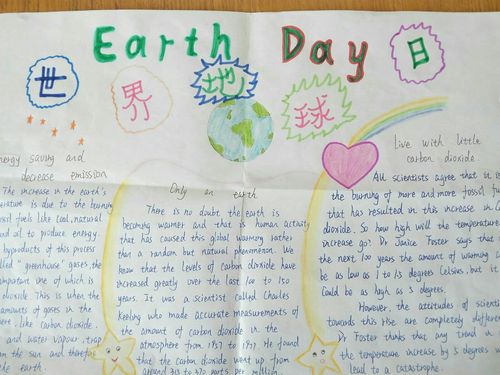 Earth Day
世界地球日
energy saving and
decrease emission
The increase in the earth's
is due to the burning
fuels like coal, natural
and oil to produce energy.
byproducts of this process
"greenhouse" gases, the
important one of which is
dioxide. This is when the
amounts of gases in the
like carbon dioxide.
and water vapour, trap
the sun and therefore
the earth.
Only an earth
There is no doubt the earth is
becoming warmer and that is human activity
that has caused this global warming rather
than a random but natural phenomenon. We
know that the levels of carbon dioxide have
increased greatly over the last 100 to 150
years. It was a scientist called Charles
Keeling who made accurate measurements of
the amount of carbon dioxide in the
atmosphere from 1957 to 1997. He found
that the carbon dioxide went up from
around 315 to 370 parts per million.
Live with little
carbon dioxide.
All scientists agree that it is
the burning of more and more fossil
that has resulted in this increase in
dioxide. So how high will the temperature
increase go? Dr Janice Foster says that
the next 100 years the amount of warming
be as low as 1 to 1.5 degrees Celsius, but it
Could be as high as 5 degrees.
However, the attitudes of scientists
towards this rise are completely different
Dr Foster thinks that any trend
the temperature increase by 5 degrees
lead to a catastrophe.